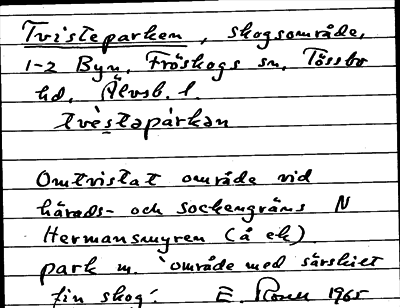 Tvisteparken, skogsområde,
1-2 Byn, Fröskogs sn, Tössbo
hd, Älvsb. l.
tvèstepàrkən
Omtvistat område vid
härads- och sockengräns N
Hermansmyren (å ek)
park m. 'område med särskilt
fin skog'. E. 1965